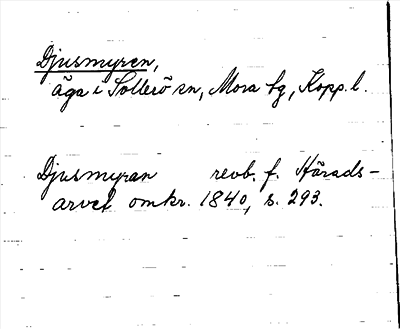 Djusmyren,
äga i Sollerö sn, Mora tg, Kopp. l.
Djusmyran revb. f. Härads-
arvet omkr. 1840, s. 293.